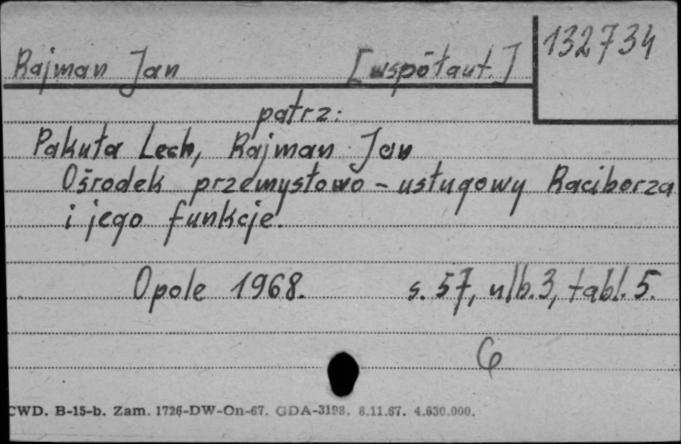 132734
Rajman Jan [współaut.]
patrz:
Pakuła Lech, Rajman Jan
Ośrodek przemysłowo-usługowy Raciborza
i jego funkcje.
Opole 1968. s. 57, nlb. 3, tabl. 5.
6
CWD. B-15-b. Zam. 1726-DW-On-67. GDA-3198. 8.11.67. 4.630.000.